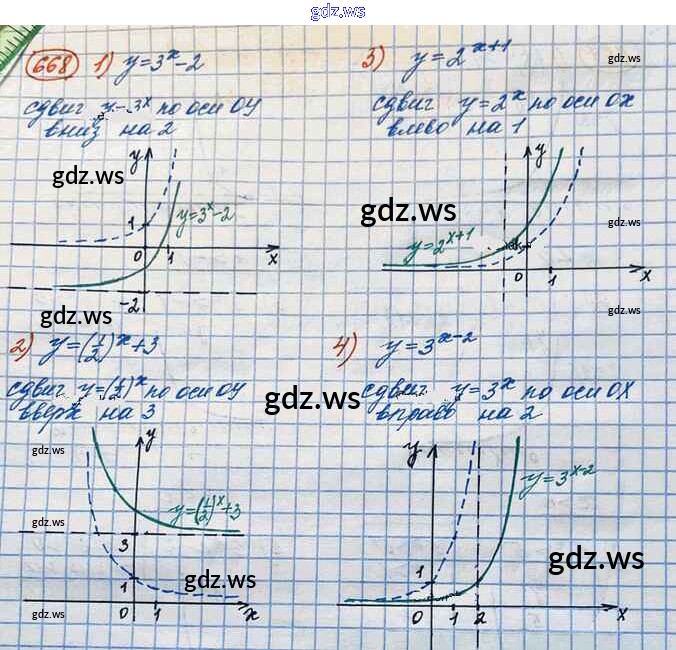 gdz.ws
668 1) y=3^x-2
сдвиг y=3^x по оси OY
вниз на 2
y
1
y=3^x-2
0 1 x
-2
gdz.ws
gdz.ws
3) y=2^{x+1}
сдвиг y=2^x по оси OX
влево на 1
y
y=2^{x+1}
0 1 x
gdz.ws
gdz.ws
gdz.ws
gdz.ws
2) y=(1/2)^x+3
сдвиг y=(1/2)^x по оси OY
вверх на 3
y
y=(1/2)^x+3
3
1
0 1 x
gdz.ws
gdz.ws
gdz.ws
gdz.ws
gdz.ws
4) y=3^{x-2}
сдвиг y=3^x по оси OX
вправо на 2
y
y=3^{x-2}
1
0 1 2 x
gdz.ws